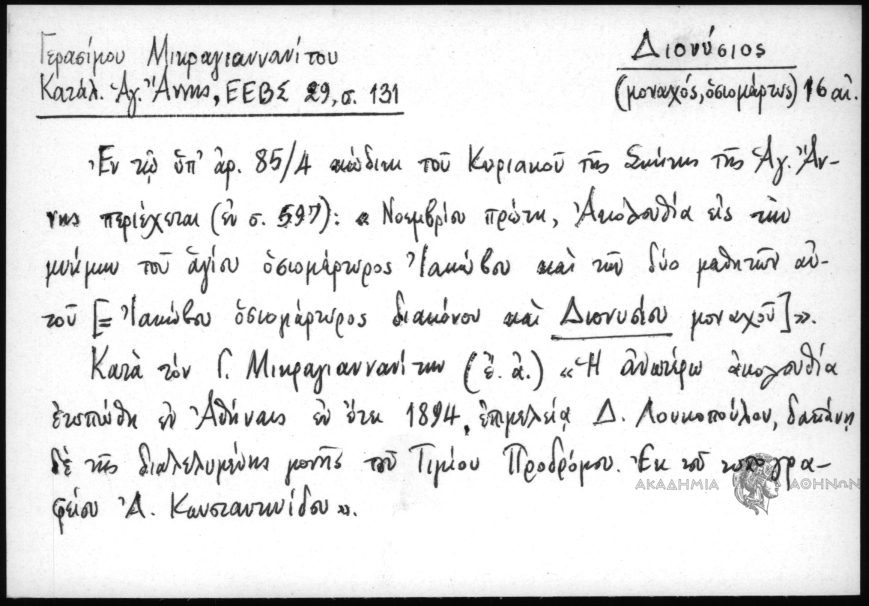 Γερασίμου Μικραγιαννανίτου
Κατάλ. Ἁγ. Ἄννης, ΕΕΒΣ 29, σ. 131
Διονύσιος
(μοναχός, ὁσιομάρτυς) 16 αἰ.
Ἐν τῷ ὑπ' ἀρ. 85/4 κώδικι τοῦ Κυριακοῦ τῆς Σκήτης τῆς Ἁγ. Ἄν-
νης περιέχεται (ἐν σ. 597): « Νοεμβρίου πρώτη, Ἀκολουθία εἰς τὴν
μνήμην τοῦ ἁγίου ὁσιομάρτυρος Ἰακώβου καὶ τῶν δύο μαθητῶν αὐ-
τοῦ [= Ἰακώβου ὁσιομάρτυρος διακόνου καὶ Διονυσίου μοναχοῦ]».
Κατὰ τὸν Γ. Μικραγιαννανίτην (ἔ. ἀ.) «Ἡ ἀνωτέρω ἀκολουθία
ἐτυπώθη ἐν Ἀθήναις ἐν ἔτει 1894, ἐπιμελείᾳ Δ. Λουκοπούλου, δαπάνῃ
δὲ τῆς διαλελυμένης μονῆς τοῦ Τιμίου Προδρόμου. Ἐκ τοῦ τυπογρα-
φείου Ἀ. Κωνσταντινίδου».
ΑΚΑΔΗΜΙΑ ΑΘΗΝΩΝ